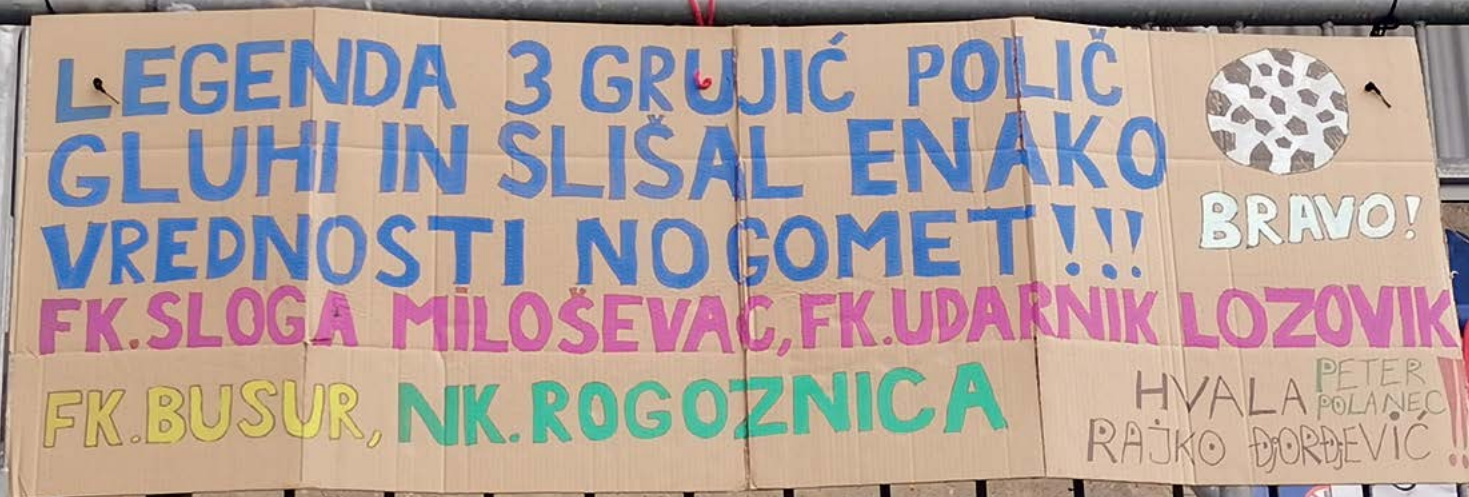 LEGENDA 3 GRUJIĆ POLIČ
GLUHI IN SLIŠAL ENAKO
VREDNOSTI NOGOMET!!!
BRAVO!
FK.SLOGA MİLOŠEVAC, FK.UDARNIK LOZOVIK
FK.BUSUR, NK.ROGOZNICA
HVALA PETER POLANEC
RAJKO ĐORĐEVIĆ!!